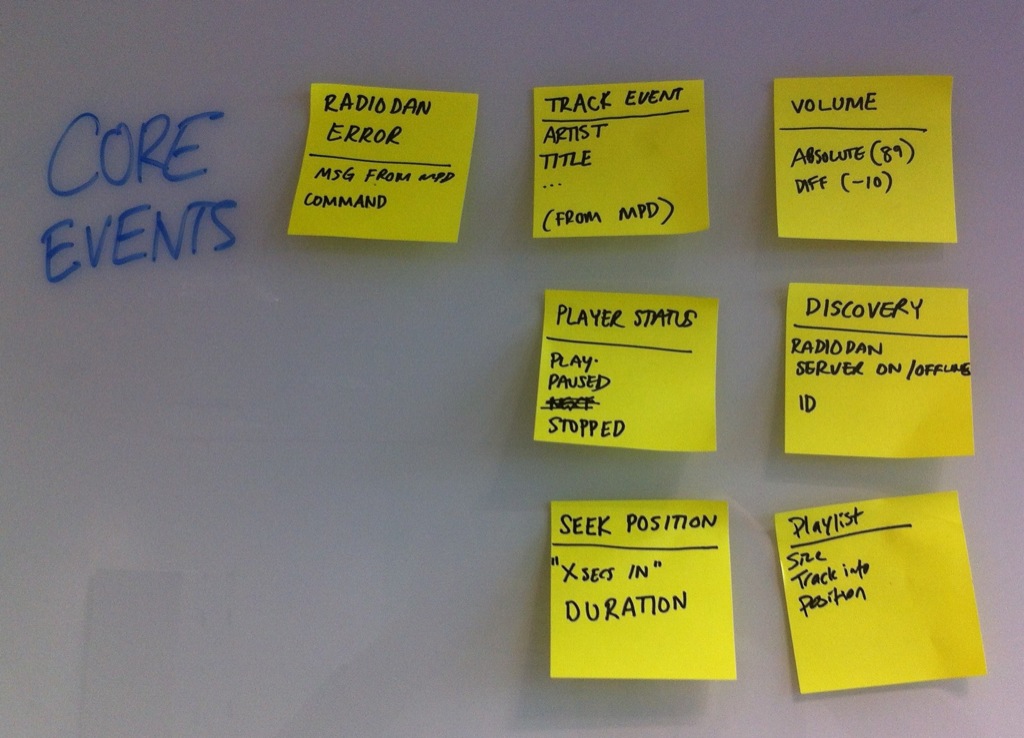 CORE
EVENTS
RADIODAN
ERROR
MSG FROM MPD
COMMAND
TRACK EVENT
ARTIST
TITLE
...
(FROM MPD)
VOLUME
ABSOLUTE (89)
DIFF (-10)
PLAYER STATUS
PLAY.
PAUSED
NEXT
STOPPED
DISCOVERY
RADIODAN
SERVER ON /OFFLINE
ID
SEEK POSITION
"X SECS IN"
DURATION
Playlist
Size
Track info
Position